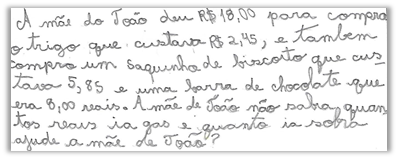 A mãe do João deu R$18,00 para compra
o trigo que custava R$2,45, e também
compro um saquinho de biscoito que cus
tava 5,85 e uma barra de chocolate que
era 8,00 reais. A mãe de João não sabia quan
tos reais ia gas e quanto ia sobra
ajude a mãe de João?